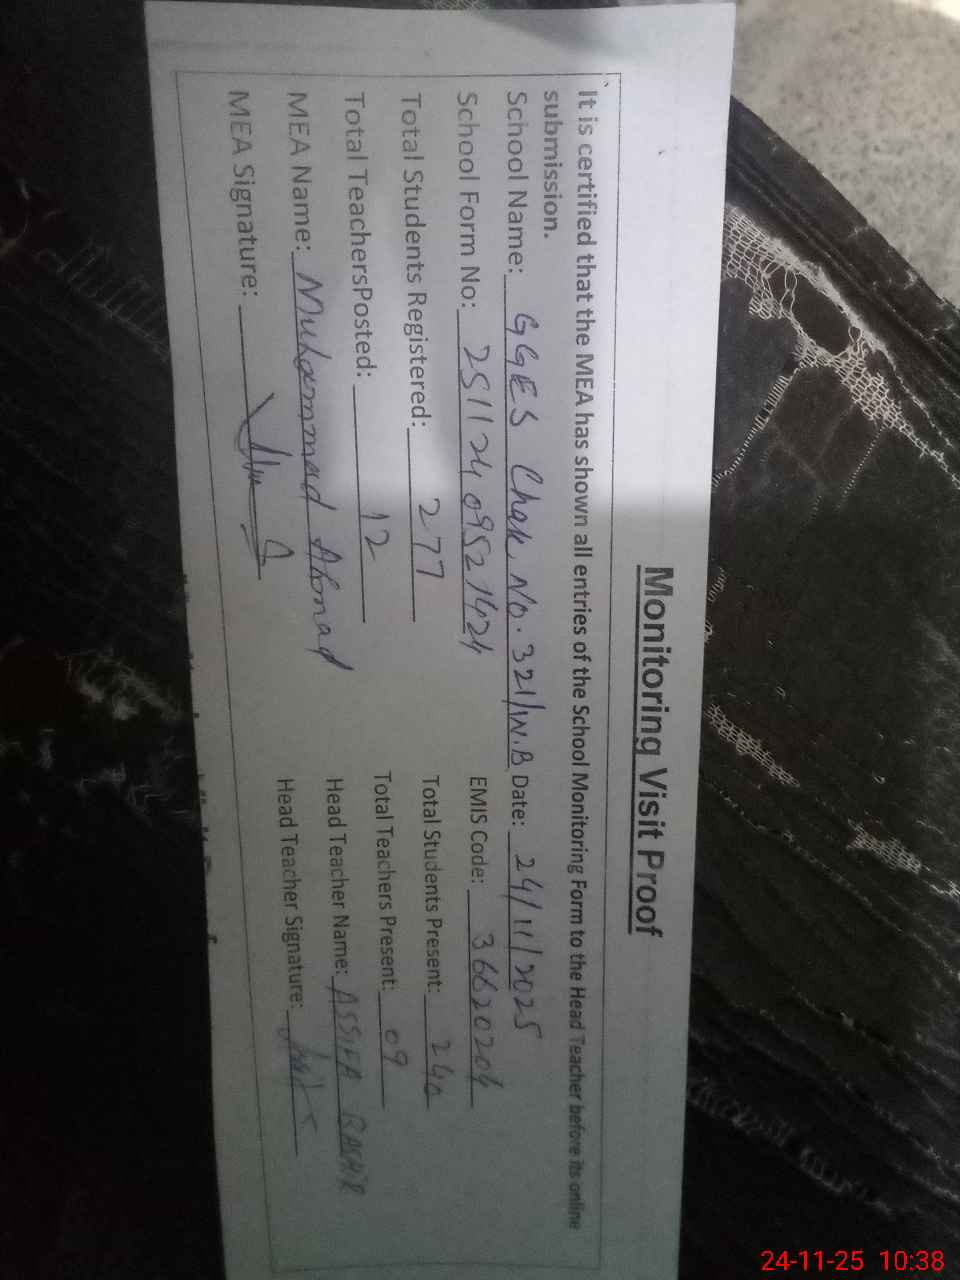 Monitoring Visit Proof
It is certified that the MEA has shown all entries of the School Monitoring Form to the Head Teacher before its online
submission.
School Name: GGES Chak No. 321/W.B Date: 24/11/2025
School Form No: 25112409521424 EMIS Code: 36620204
Total Students Registered: 277 Total Students Present: 240
Total TeachersPosted: 12 Total Teachers Present: 09
MEA Name: Muhammad Ahmad Head Teacher Name: ASSIFA BASHIR
MEA Signature: Head Teacher Signature:
24-11-25 10:38